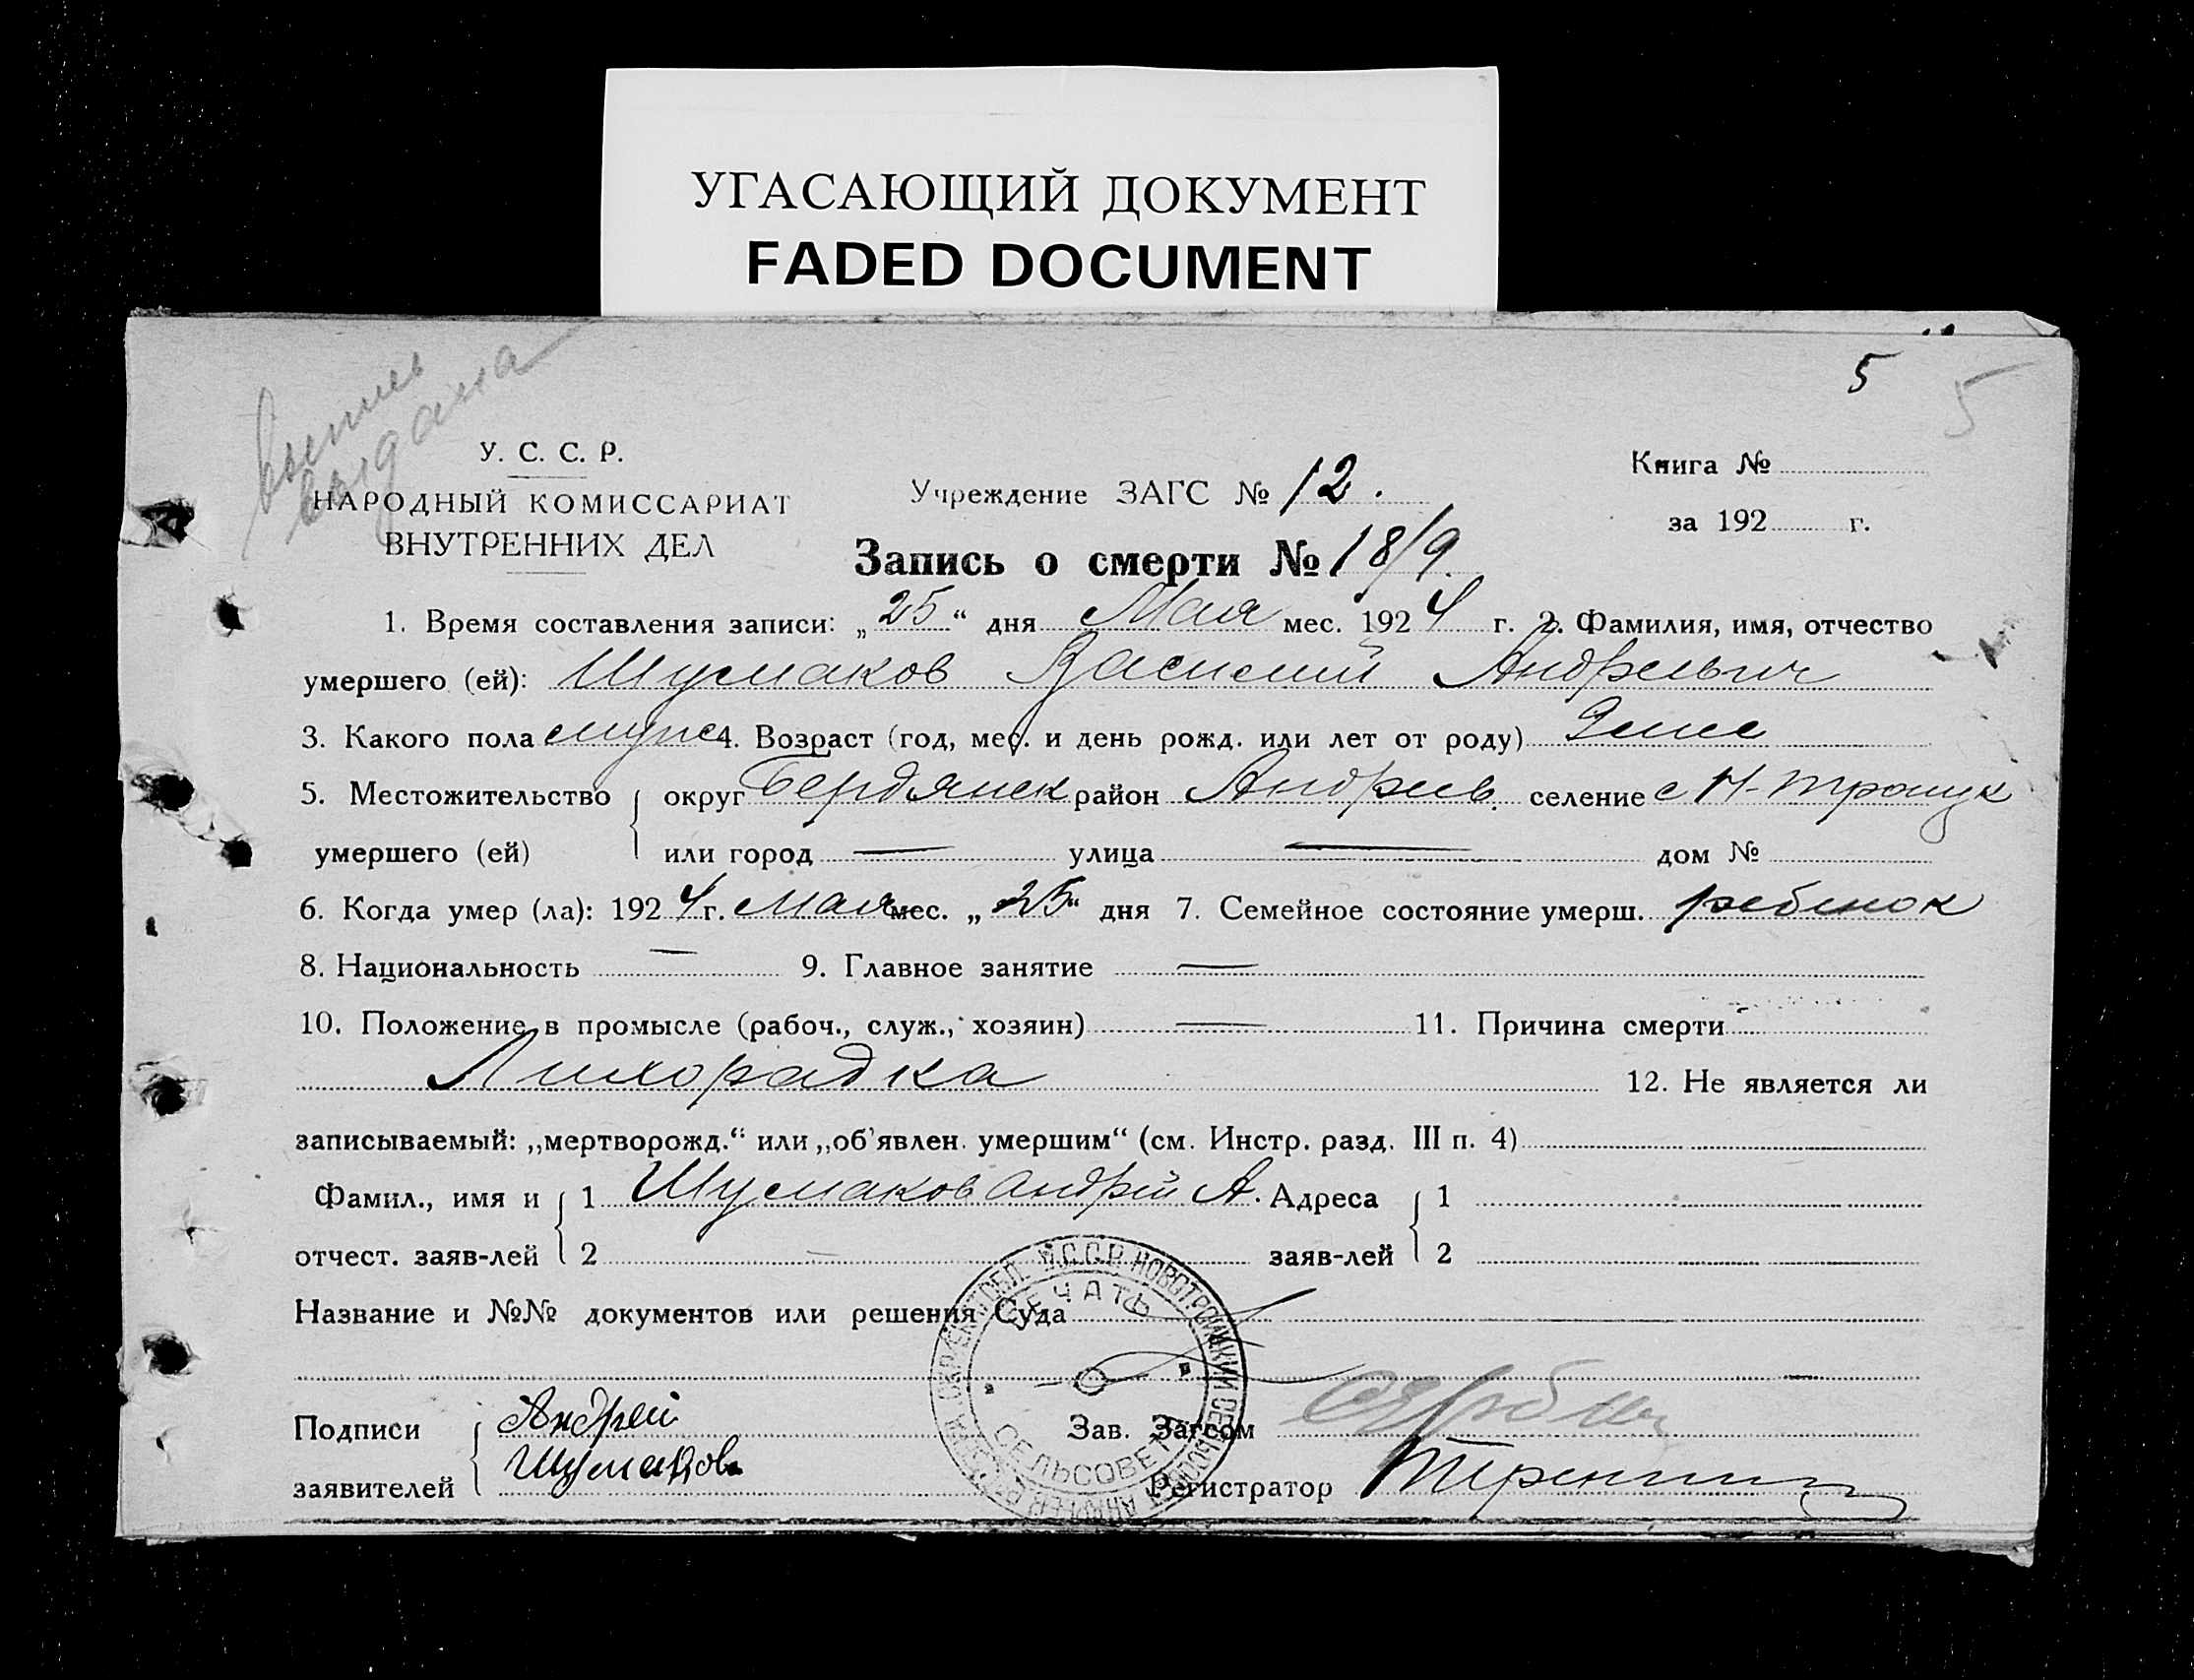 УГАСАЮЩИЙ ДОКУМЕНТ
FADED DOCUMENT
5 5
выпись
выдана
У. С. С. Р.
НАРОДНЫЙ КОМИССАРИАТ
ВНУТРЕННИХ ДЕЛ
Учреждение ЗАГС № 12.
Книга №
за 192 г.
Запись о смерти № 18/9.
1. Время составления записи: „25“ дня Мая мес. 1924 г. 2. Фамилия, имя, отчество
умершего (ей): Шумаков Василий Андреевич
3. Какого пола муж 4. Возраст (год, мес. и день рожд. или лет от роду)
5. Местожительство округ Бердянск район Андреев. селение с Н-Троицк
умершего (ей) или город — улица — дом №
6. Когда умер (ла): 1924 г. Мая мес. „25“ дня 7. Семейное состояние умерш. ребенок
8. Национальность — 9. Главное занятие —
10. Положение в промысле (рабоч., служ., хозяин) — 11. Причина смерти
Лихорадка 12. Не является ли
записываемый: „мертворожд.“ или „об'явлен. умершим“ (см. Инстр. разд. III п. 4)
Фамил., имя и 1 Шумаков Андрей А. Адреса 1
отчест. заяв-лей 2 заяв-лей 2
Название и №№ документов или решения Суда
Подписи Андрей Зав. Загсом
заявителей Шумаков Регистратор
ПЕЧАТЬ
СЕЛЬСОВЕТА